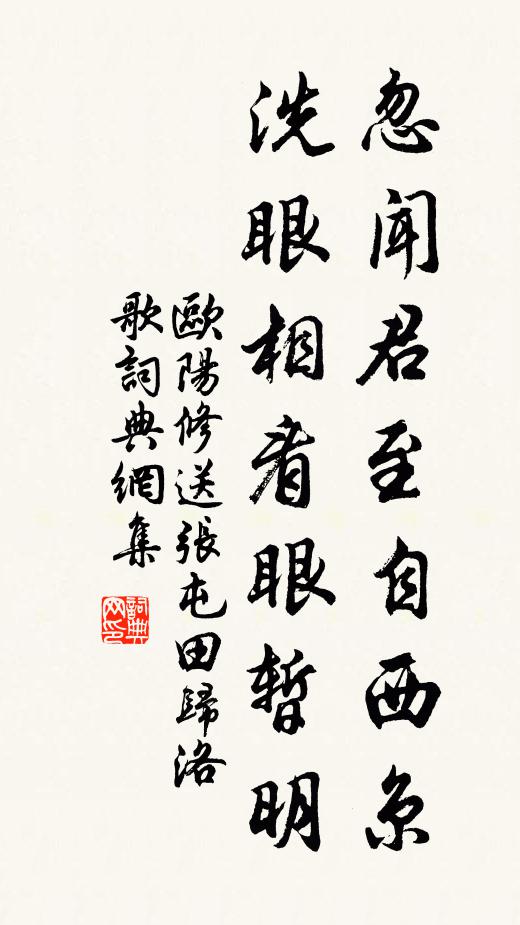 忽聞君至自西京
洗眼相看眼暫明
歐陽修送張屯田歸洛
歌詞典網集
詞典網印